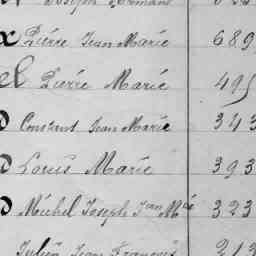 Joseph Armand 323
x Pierre Jean Marie 689
el Pierre Marie 495
o Constant Jean Marie 343
o Louis Marie 393
o Michel Joseph Jean Mie 323
Julien Jean François 213